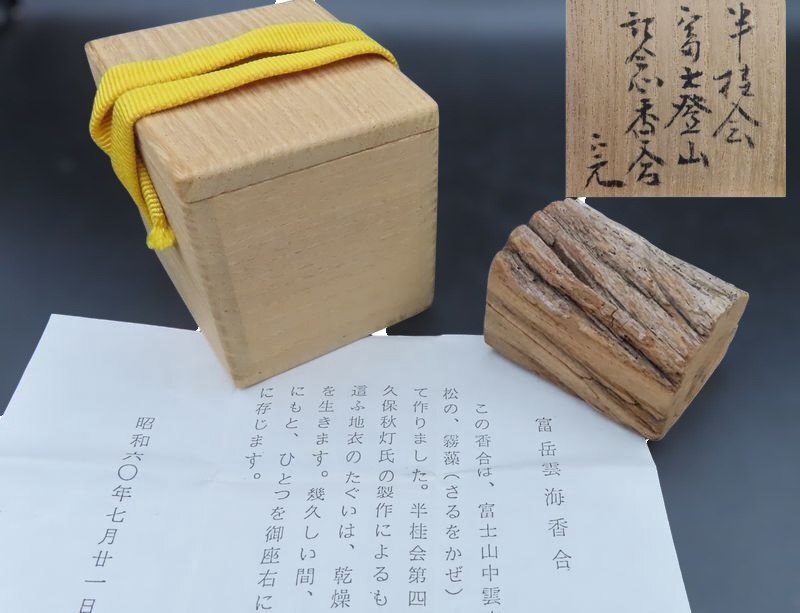 半桂会
富士登山
記念香合
富岳雲海香合
この香合は、富士山中雲
松の、霧藻(さるをかぜ)
て作りました。半桂会第四
久保秋灯氏の製作によるも
這ふ地衣のたぐいは、乾燥
を生きます。幾久しい間、
にもと、ひとつを御座右に
に存じます。
昭和六〇年七月廿一日